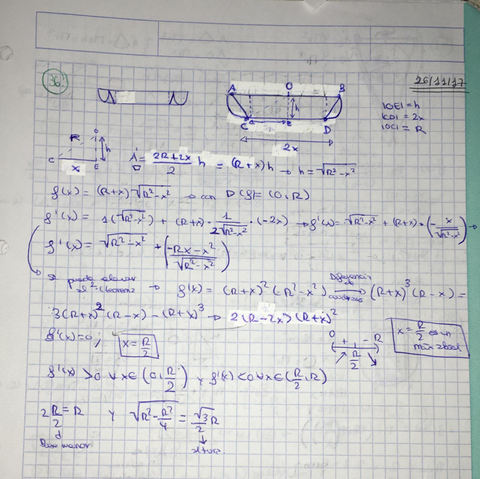 36
26/11/17
A O B
h
C E D
2x
|OE| = h
|CD| = 2x
|OC| = R
O
R
h
C x E
A = (2R+2x)/2 h = (R+x)h → h = √(R²-x²)
f(x) = (R+x)√(R²-x²) → con D(f) = (0, R)
f'(x) = 1(√(R²-x²)) + (R+x) · 1/(2√(R²-x²)) · (-2x) → f'(x) = √(R²-x²) + (R+x) · (-x/√(R²-x²)) →
f'(x) = √(R²-x²) + (-Rx-x²/√(R²-x²))
→ se puede elevar
Diferencia de cuadrados
→ f(x) = (R+x)² (R²-x²) → (R+x)³ (R-x) =
3(R+x)² (R-x) - (R+x)³ → 2(R-2x)(R+x)²
f'(x)=0; x = R/2
0 + R/2 - R
x = R/2 es un
f'(x) > 0 ∀ x ∈ (0, R/2) y f'(x) < 0 ∀ x ∈ (R/2, R)
2 R/2 = R y √(R² - R²/4) = √3/2 R
Base menor
altura